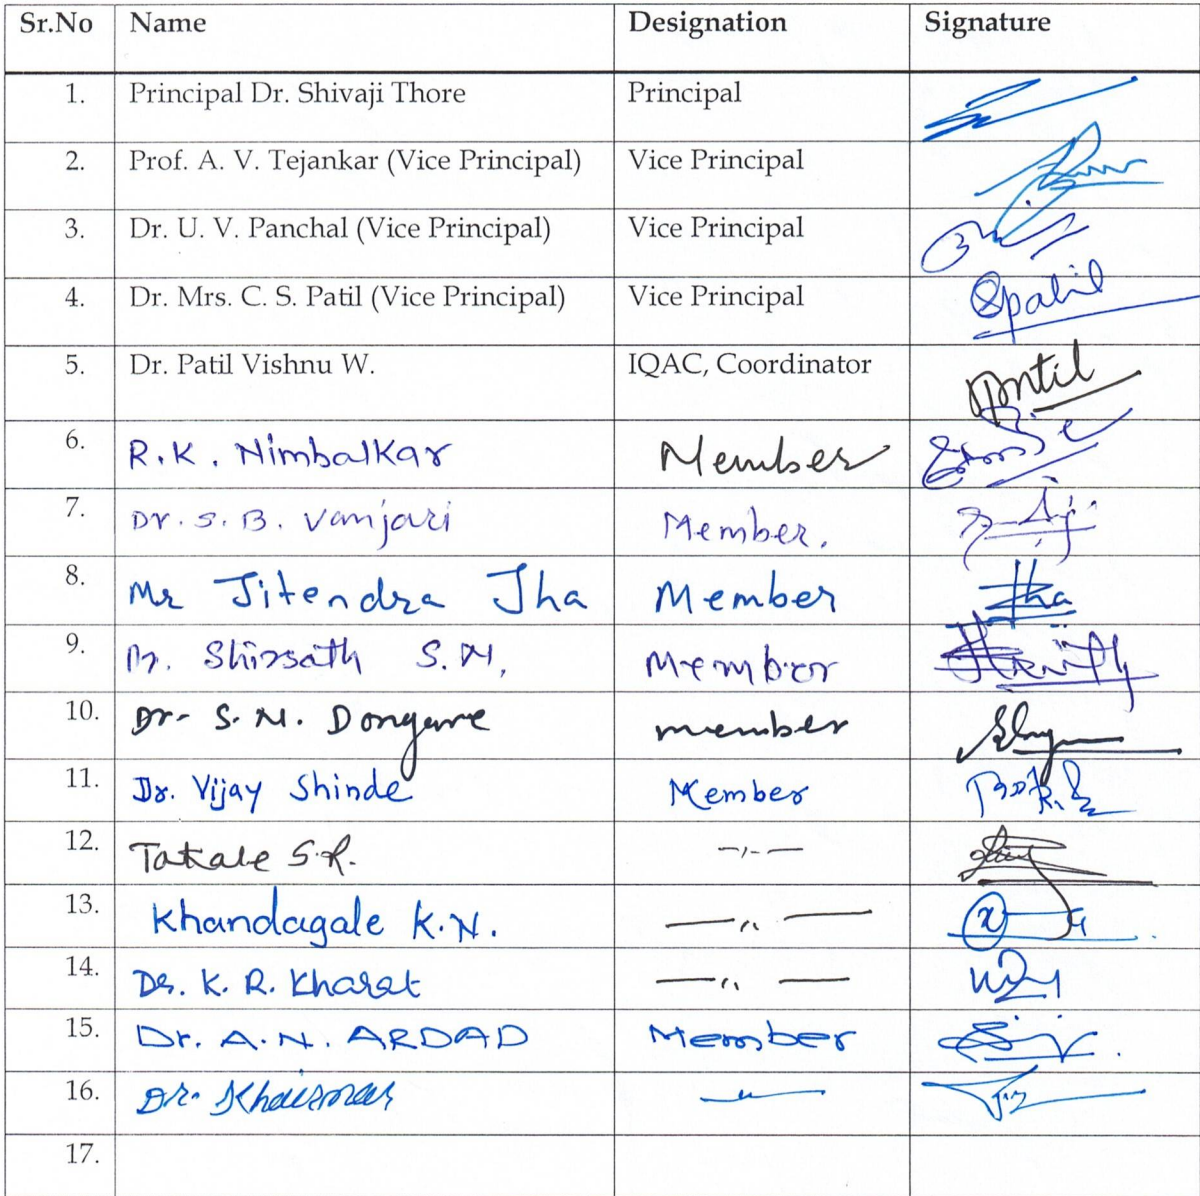 Sr.No Name Designation Signature
1. Principal Dr. Shivaji Thore Principal
2. Prof. A. V. Tejankar (Vice Principal) Vice Principal
3. Dr. U. V. Panchal (Vice Principal) Vice Principal
4. Dr. Mrs. C. S. Patil (Vice Principal) Vice Principal Spatil
5. Dr. Patil Vishnu W. IQAC, Coordinator
6. R.K. Nimbalkar Member
7. Dr. S. B. Vanjari Member.
8. Mr Jitendra Jha Member Jha
9. Dr. Shirsath S.N. Member
10. Dr- S. N. Dongare member
11. Dr. Vijay Shinde Member
12. Takale S.R. —"—
13. Khandagale K.N. —"—
14. Dr. K. R. Kharat —"—
15. Dr. A.N. ARDAD Member
16. Dr. Khairnar —"—
17.